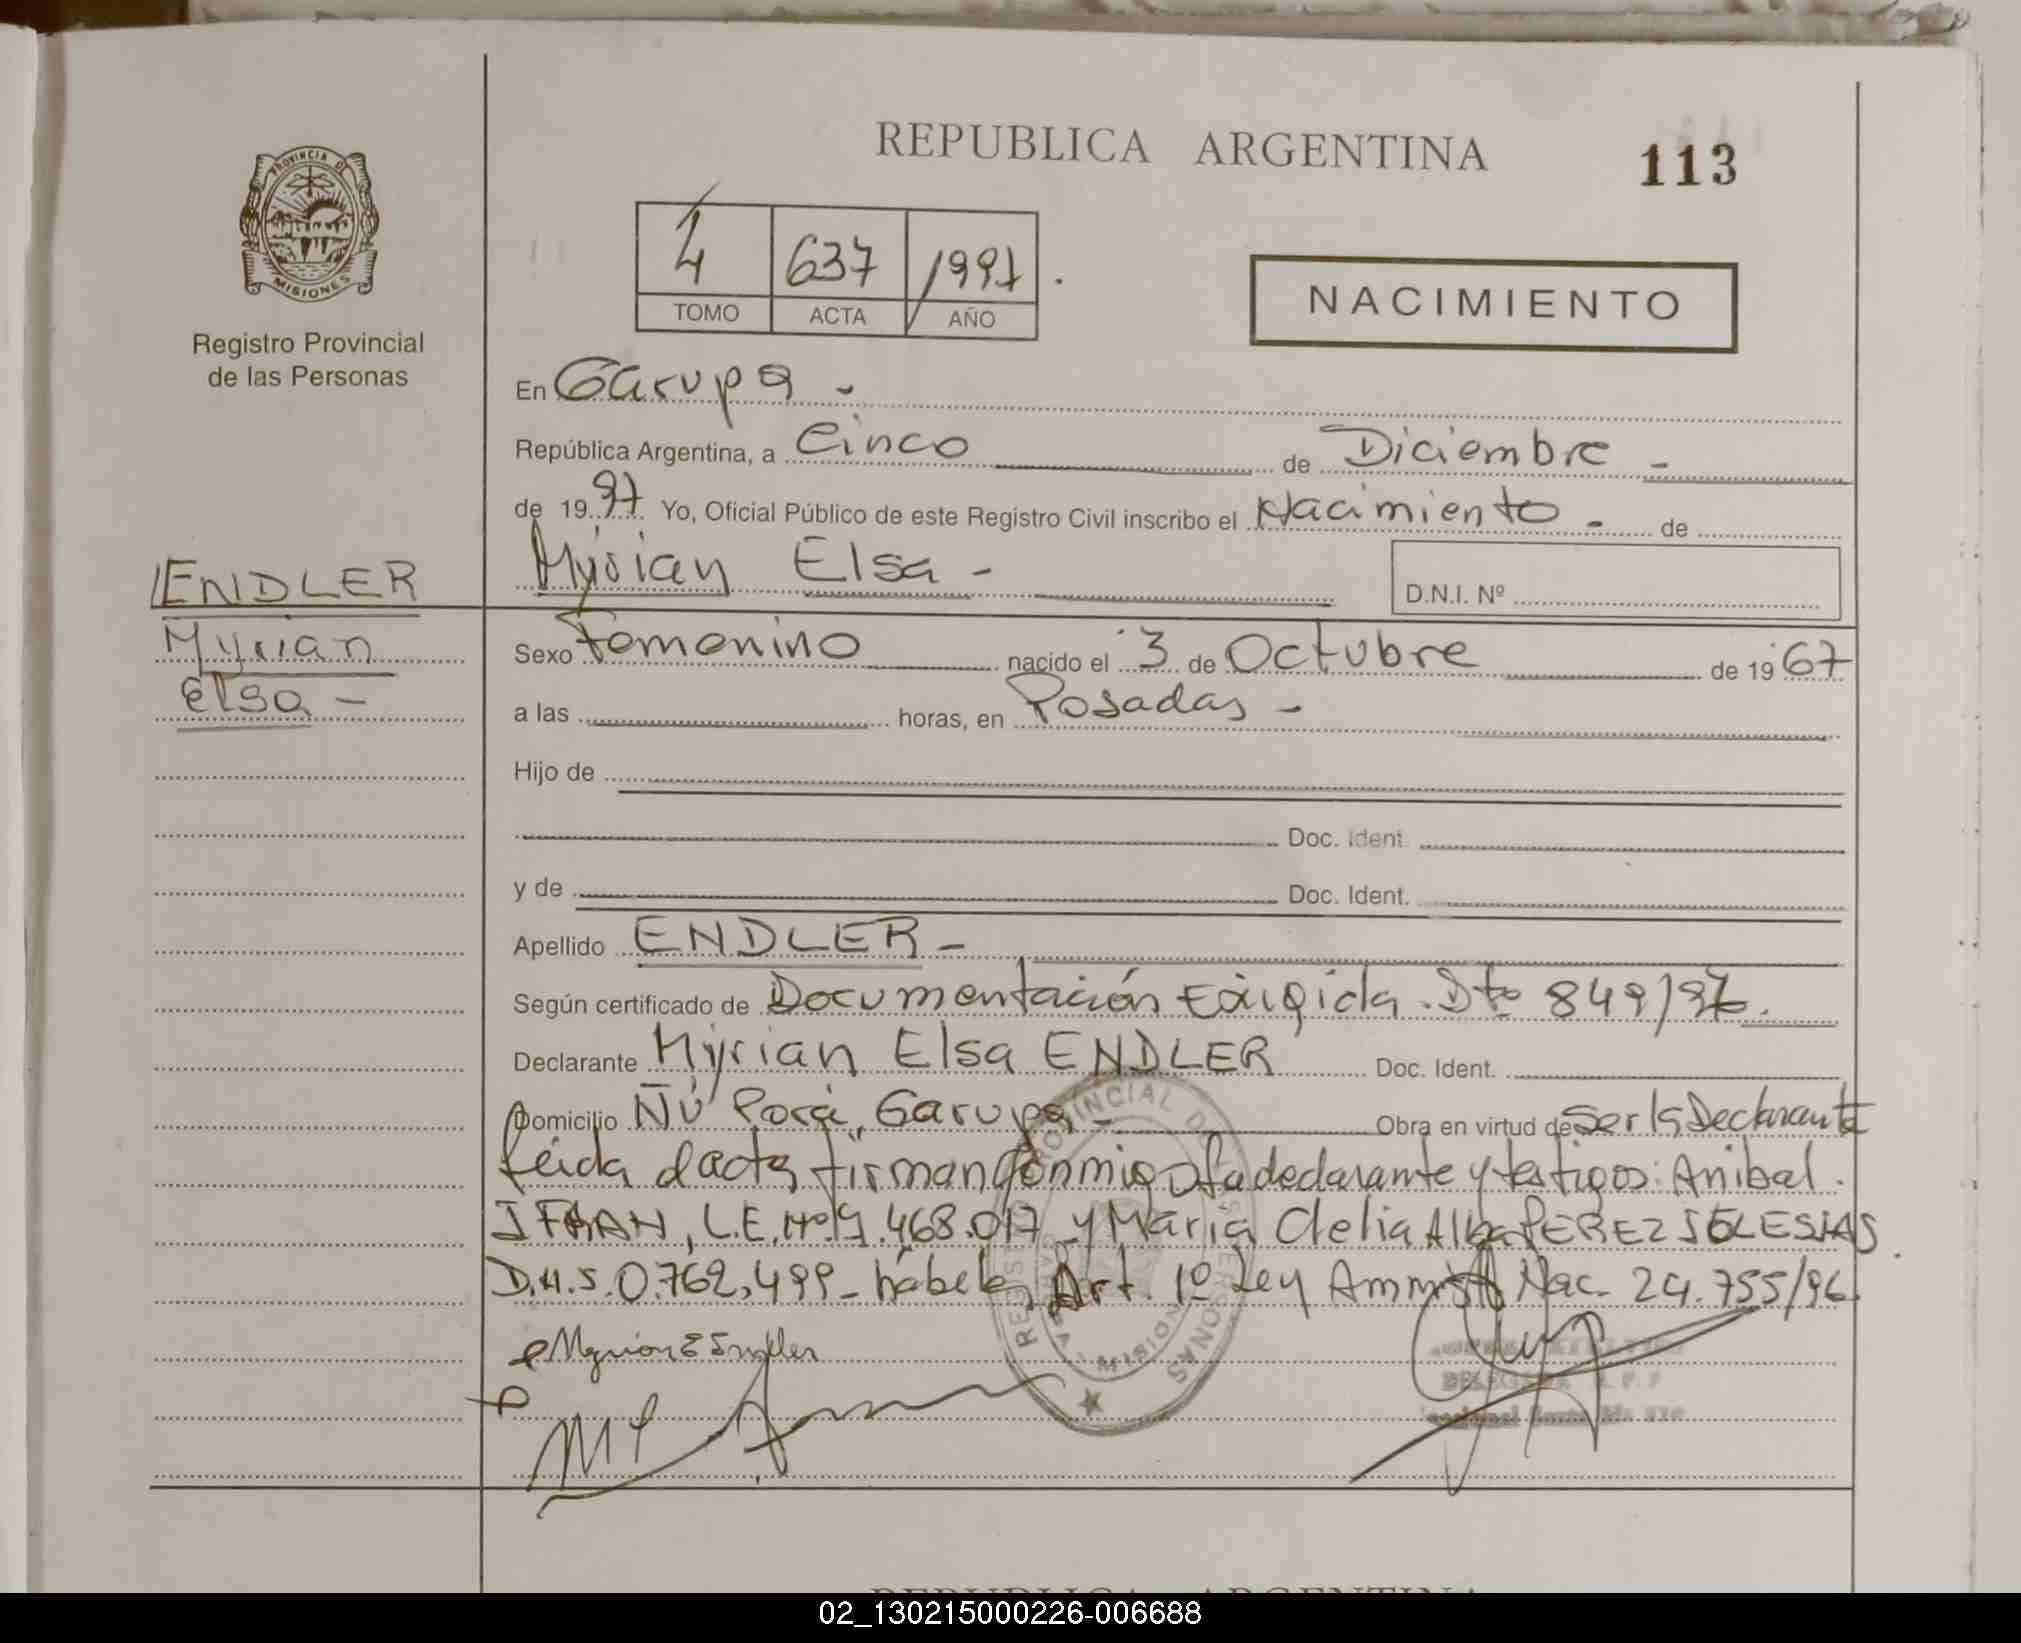 REPUBLICA ARGENTINA
113
PROVINCIA DE
MISIONES
Registro Provincial
de las Personas
4 637 1997.
TOMO ACTA AÑO
NACIMIENTO
En Garupa -
República Argentina, a Cinco de Diciembre -
de 1997 Yo, Oficial Público de este Registro Civil inscribo el Nacimiento - de
Myrian Elsa -
D.N.I. Nº
ENDLER
Myrian
Elsa -
Sexo Femenino nacido el 3 de Octubre de 1967
a las horas, en Posadas -
Hijo de
Doc. Ident.
y de Doc. Ident.
Apellido ENDLER -
Según certificado de Documentación Exigida. Dto 849/96.
Declarante Myrian Elsa ENDLER Doc. Ident.
Domicilio Ñu Porá, Garupa - Obra en virtud de Ser la Declarante
leída el acta firman conmigo la declarante y testigos: Anibal
L.E. Nº 468.017 y Maria Clelia Alba PEREZ IGLESIAS
0.762.499 - hábeles Art. 1º Ley Nac. 24.755/96
Myrian E Endler
02_130215000226-006688